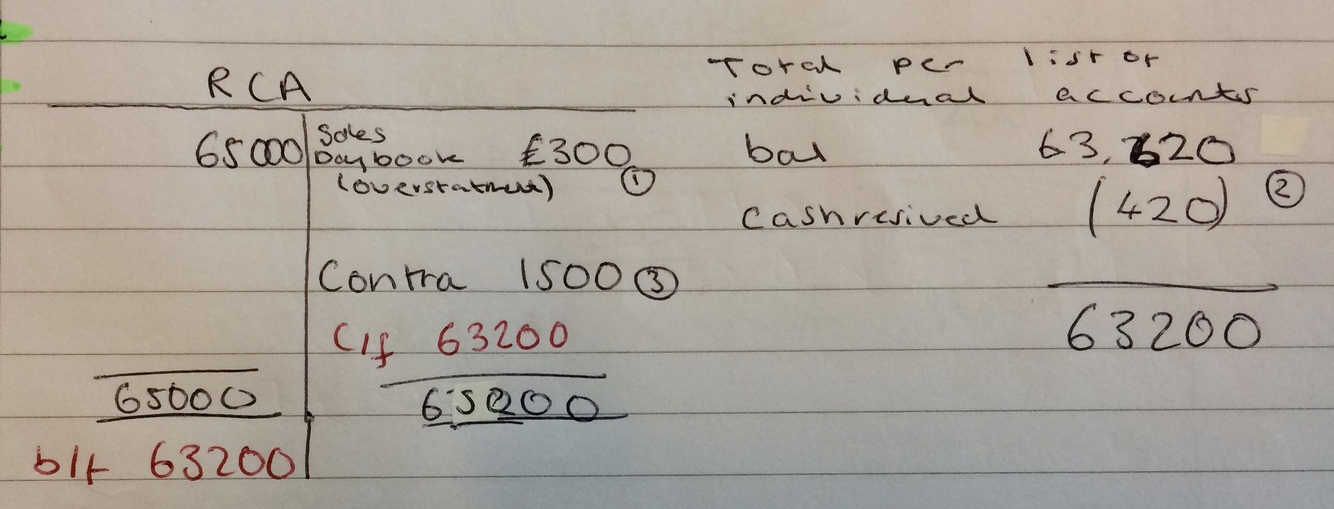 RCA
65000 Sales
Daybook £300
(overstatment) ①
Contra 1500 ③
C/f 63200
65000 65000
b/f 63200
Total per list of
individual accounts
bal 63,620
Cash resived (420) ②
63200